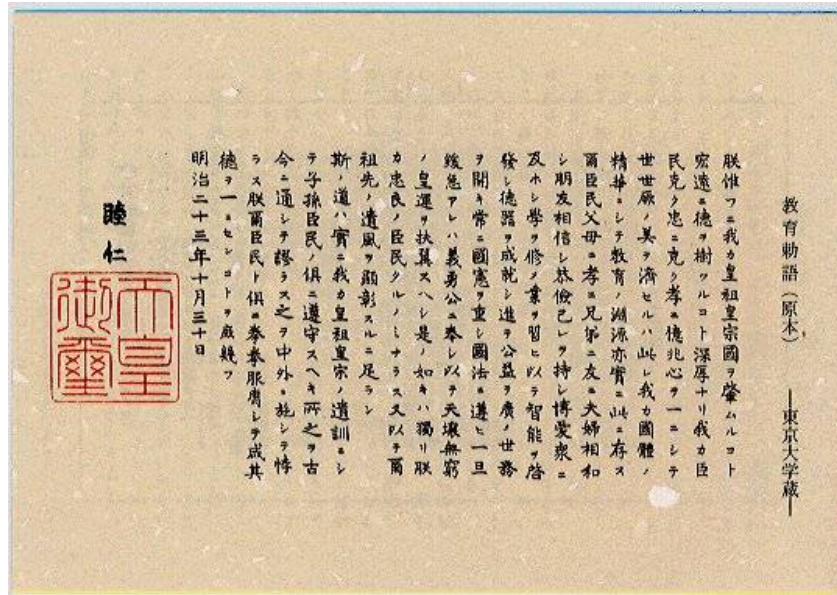 教育勅語（原本）　―東京大学蔵―
朕惟フニ我カ皇祖皇宗國ヲ肇ムルコト
宏遠ニ德ヲ樹ツルコト深厚ナリ我カ臣
民克ク忠ニ克ク孝ニ億兆心ヲ一ニシテ
世世厥ノ美ヲ濟セルハ此レ我カ國體ノ
精華ニシテ教育ノ淵源亦實ニ此ニ存ス
爾臣民父母ニ孝ニ兄弟ニ友ニ夫婦相和
シ朋友相信シ恭儉己レヲ持シ博愛衆ニ
及ホシ學ヲ修メ業ヲ習ヒ以テ智能ヲ啓
發シ德器ヲ成就シ進テ公益ヲ廣メ世務
ヲ開キ常ニ國憲ヲ重シ國法ニ遵ヒ一旦
緩急アレハ義勇公ニ奉シ以テ天壤無窮
ノ皇運ヲ扶翼スヘシ是ノ如キハ獨リ朕
カ忠良ノ臣民タルノミナラス又以テ爾
祖先ノ遺風ヲ顯彰スルニ足ラン
斯ノ道ハ實ニ我カ皇祖皇宗ノ遺訓ニシ
テ子孫臣民ノ俱ニ遵守スヘキ所之ヲ古
今ニ通シテ謬ラス之ヲ中外ニ施シテ悖
ラス朕爾臣民ト俱ニ拳拳服膺シテ咸其
德ヲ一ニセンコトヲ庶幾フ
明治二十三年十月三十日
睦仁
天皇
御璽